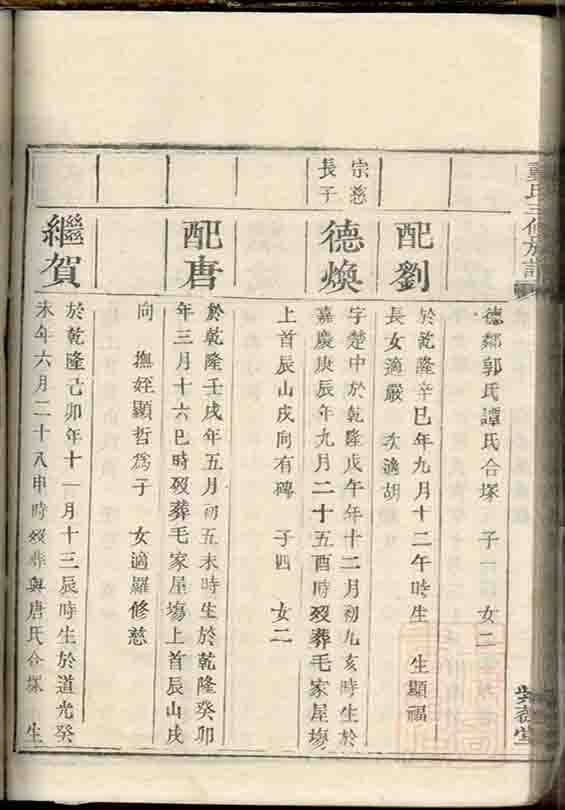 德鄰郭氏譚氏合塚 子一 女二
配劉
於乾隆辛巳年九月十二午時生 生顯福
長女適嚴 次適胡
宗慈長子
德煥
字楚中於乾隆戊午年十二月初九亥時生於
嘉慶庚辰年九月二十五酉時歿葬毛家屋塲
上首辰山戌向有碑 子四 女二
配唐
於乾隆壬戌年五月初五未時生於乾隆癸卯
年三月十六巳時歿葬毛家屋塲上首辰山戌
向 撫姪顯哲爲子 女適羅修慈
繼賀
於乾隆己卯年十一月十三辰時生於道光癸
未年六月二十八申時歿葬與唐氏合塚 生